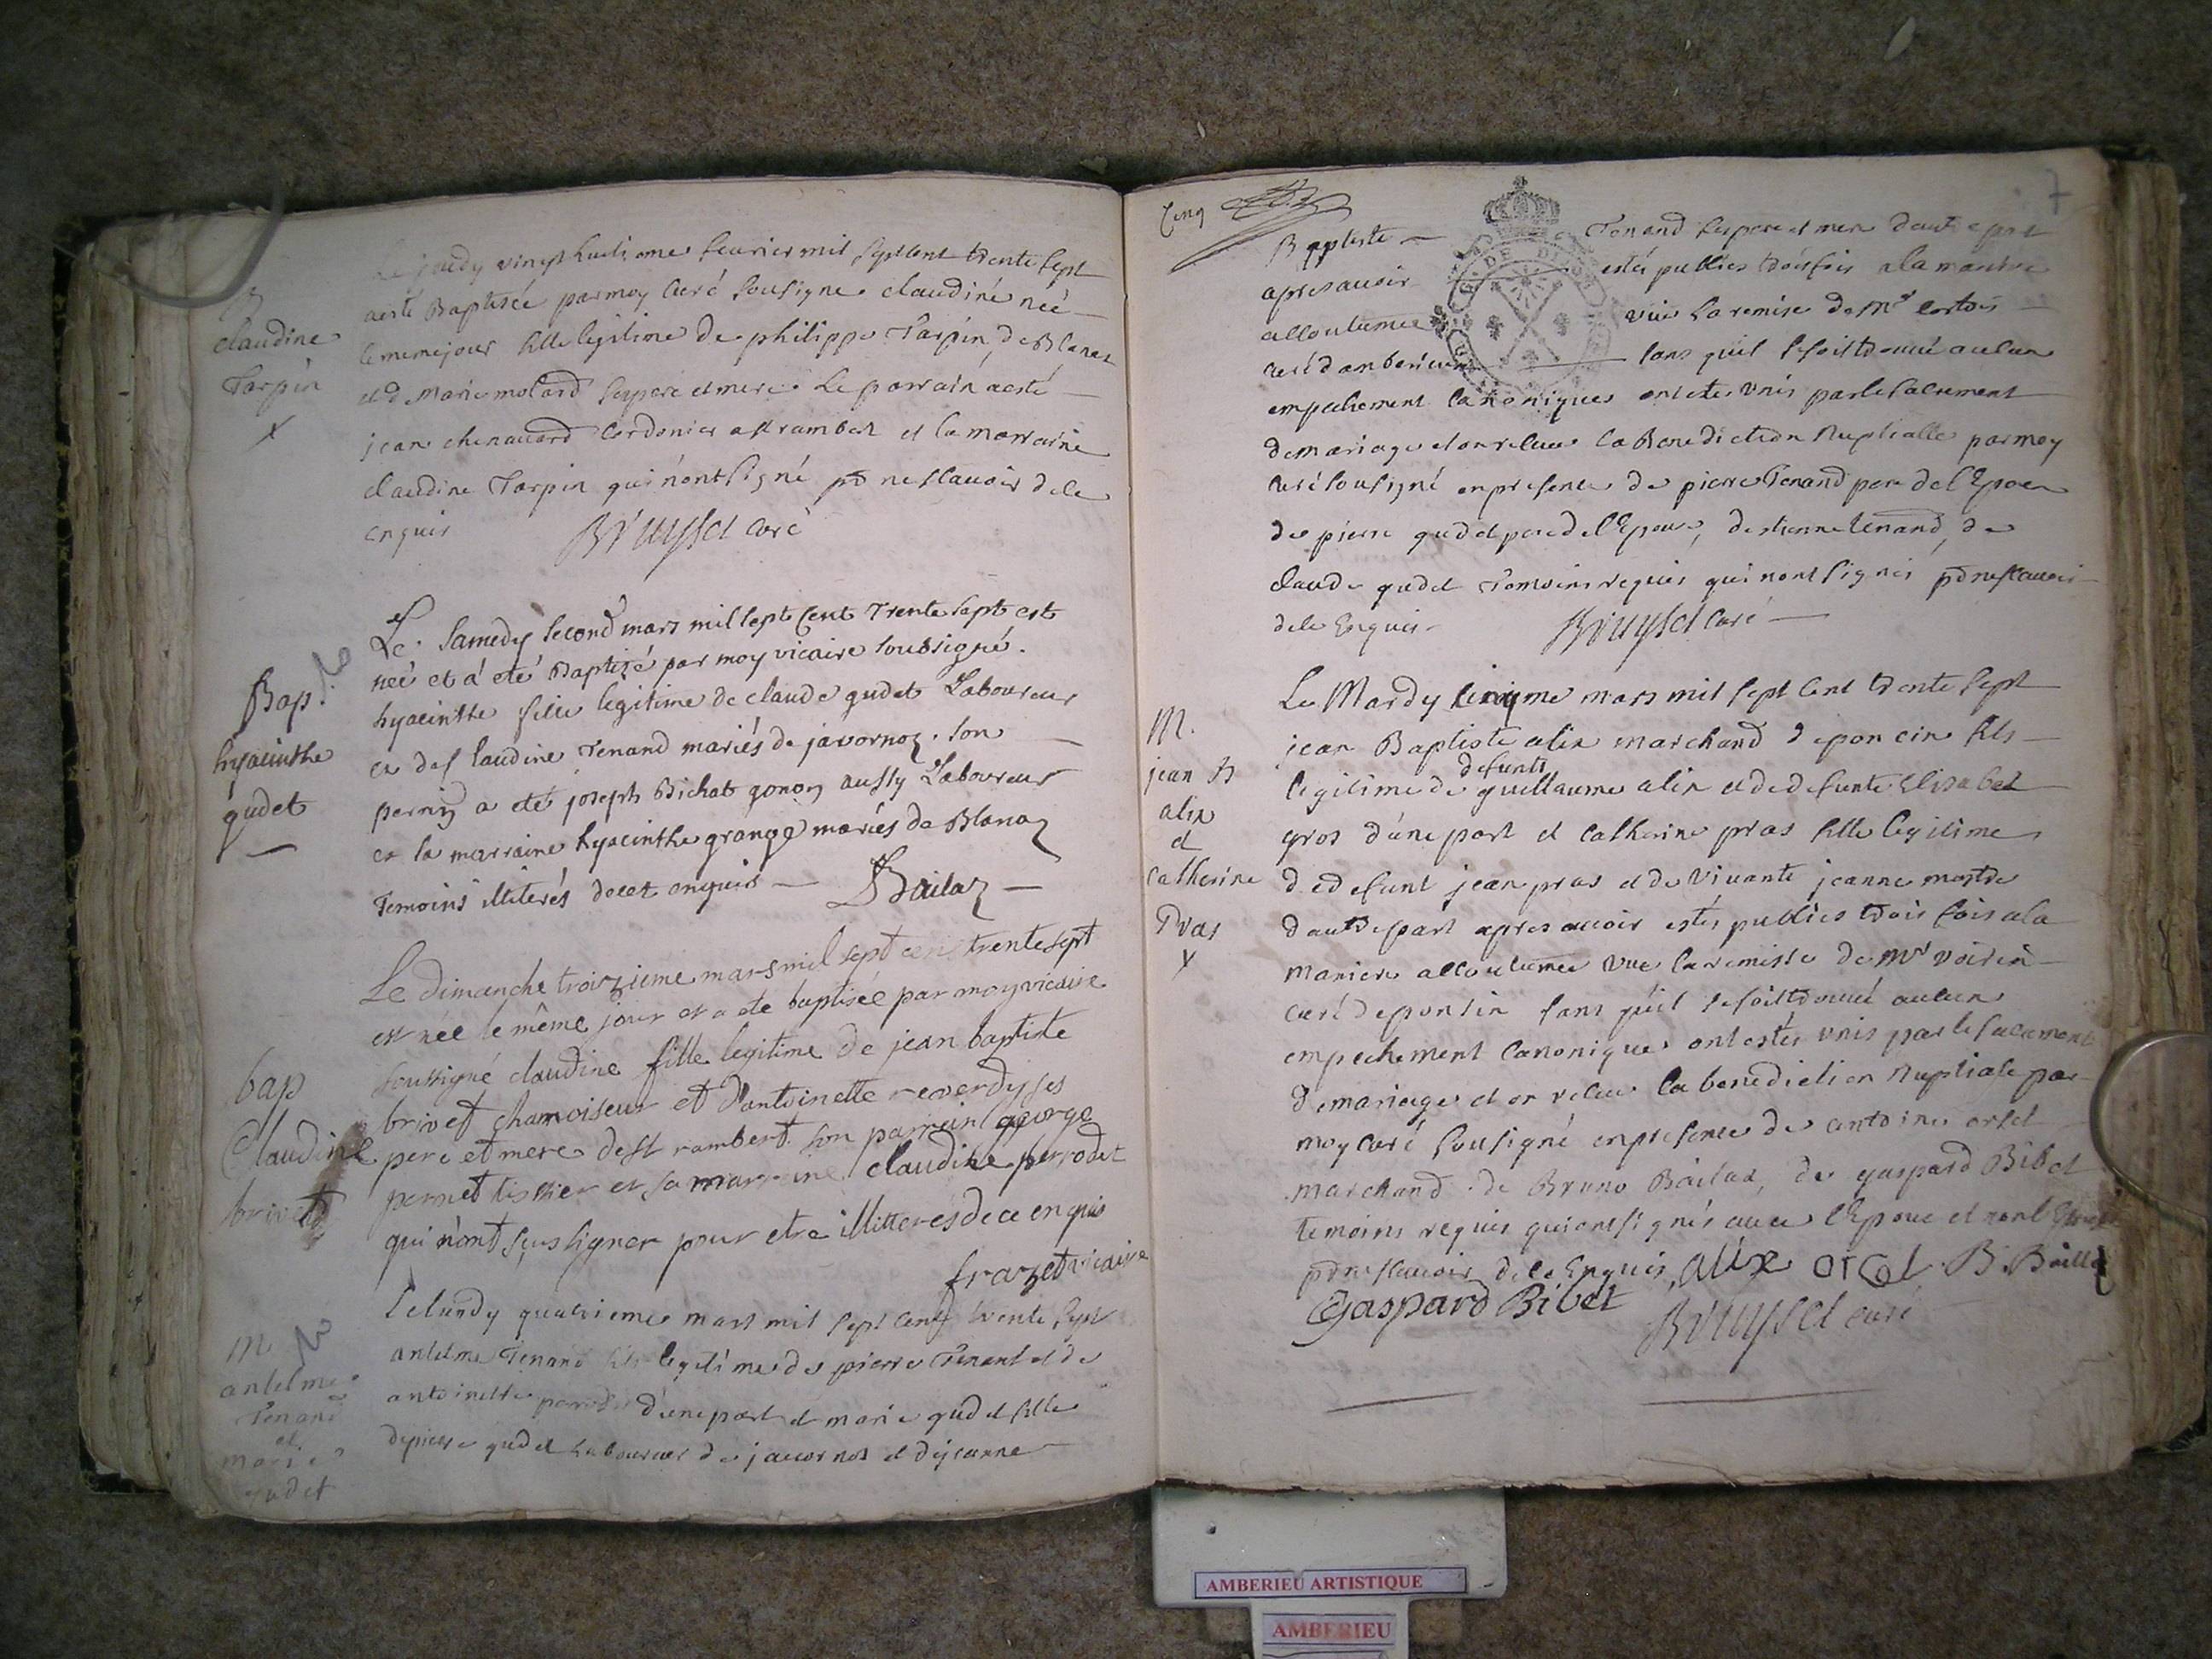 B
claudine
Tarpin
x
Le jeudy vingt huitieme fevrier mil sept cent trente sept
a esté Baptisée par moy curé sousigné claudine neé
le meme jour fille legitime de philippe Tarpin de Blanaz
et de Marie molard ses pere et mere. Le parrain a esté
jean chenavard cordonier a st rambert et la marraine
claudine Tarpin qui n'ont signé pr ne scavoir de ce
enquis Bruyset curé
Bap.
hyacinthe
gudet
Le samedy second mars mil sept cent Trente sept est
neé et a eté Baptizé par moy vicaire soubsigné
hyacinthe fille legitime de claude gudet Laboureur
et de claudine Tenand mariés de javornoz. son
perrin a eté joseph Bichat gonon aussy Laboureur
et la marraine hyacinthe grange mariés de Blanaz
Temoins illiterés de cet enquis Bailaz
bap
Claudine
brivet
Le dimanche troizieme mars mil sept cens trente sept
est née le même jour et a ete baptisée par moy vicaire
soussigné claudine fille legitime de jean baptiste
brivet chamoiseur et d'antoinette reverdy ses
pere et mere de st rambert. son parrain george
pernet tissier et sa marraine claudine perrodet
qui n'ont sçus signer pour etre illitteres de ce enquis
frazet vicaire
M
antelme
Tenand
et
marie
gudet
Le lundy quatrieme mars mil sept cent trente sept
antelme Tenand fils legitime de pierre Tenand et de
antoinette d'une part et marie gudet fille
de pierre gudet Laboureur de javornos et de jeanne
Cinq
7
Baptiste Tenand ses pere et mere d'autre part
apres avoir estés publiés trois fois a la maniere
accoutumée vüe la remise de Mr cortois
curé d'amberieux sans qu'il se soit trouvé aucun
empechement canonique ont estés unis par le sacrement
de mariage et on receu la Benediction Nuptialle par moy
curé sousigné en presence de pierre Tenand pere de l'Epoux
de pierre gudet pere de l'Epouse, d'estienne tenand, de
claude gudet Temoins requis qui n'ont signés pr ne scavoir
de ce Enquis Bruyset curé
M.
jean B
alix
et
catherine
Pras
x
Le Mardy cinqme mars mil sept cent trente sept
jean Baptiste alix marchand de poncin fils
legitime de defunts guillaume alix et de defunte Elisabet
gros d'une part et catherine pras fille legitime
de defunt jean pras et de vivante jeanne mestre
d'autre part apres avoir estés publiés trois fois a la
maniere accoutumée vüe la remisse de Mr voirin
curé de ponsin sans qu'il se soit trouvé aucun
empechement canonique ont estés unis par le sacrement
de mariage et on receu la benediction Nuptiale par
moy curé sousigné en presence de antoine orset
marchand de Bruno Bailaz, de gaspard Bibet
temoins requis qui ont signés avec l'Epoux et non l'Epouse
pr ne scavoir de ce Enquis, alix orset B. Baillaz
Gaspard Bibet Bruyset curé
AMBERIEU ARTISTIQUE
AMBERIEU